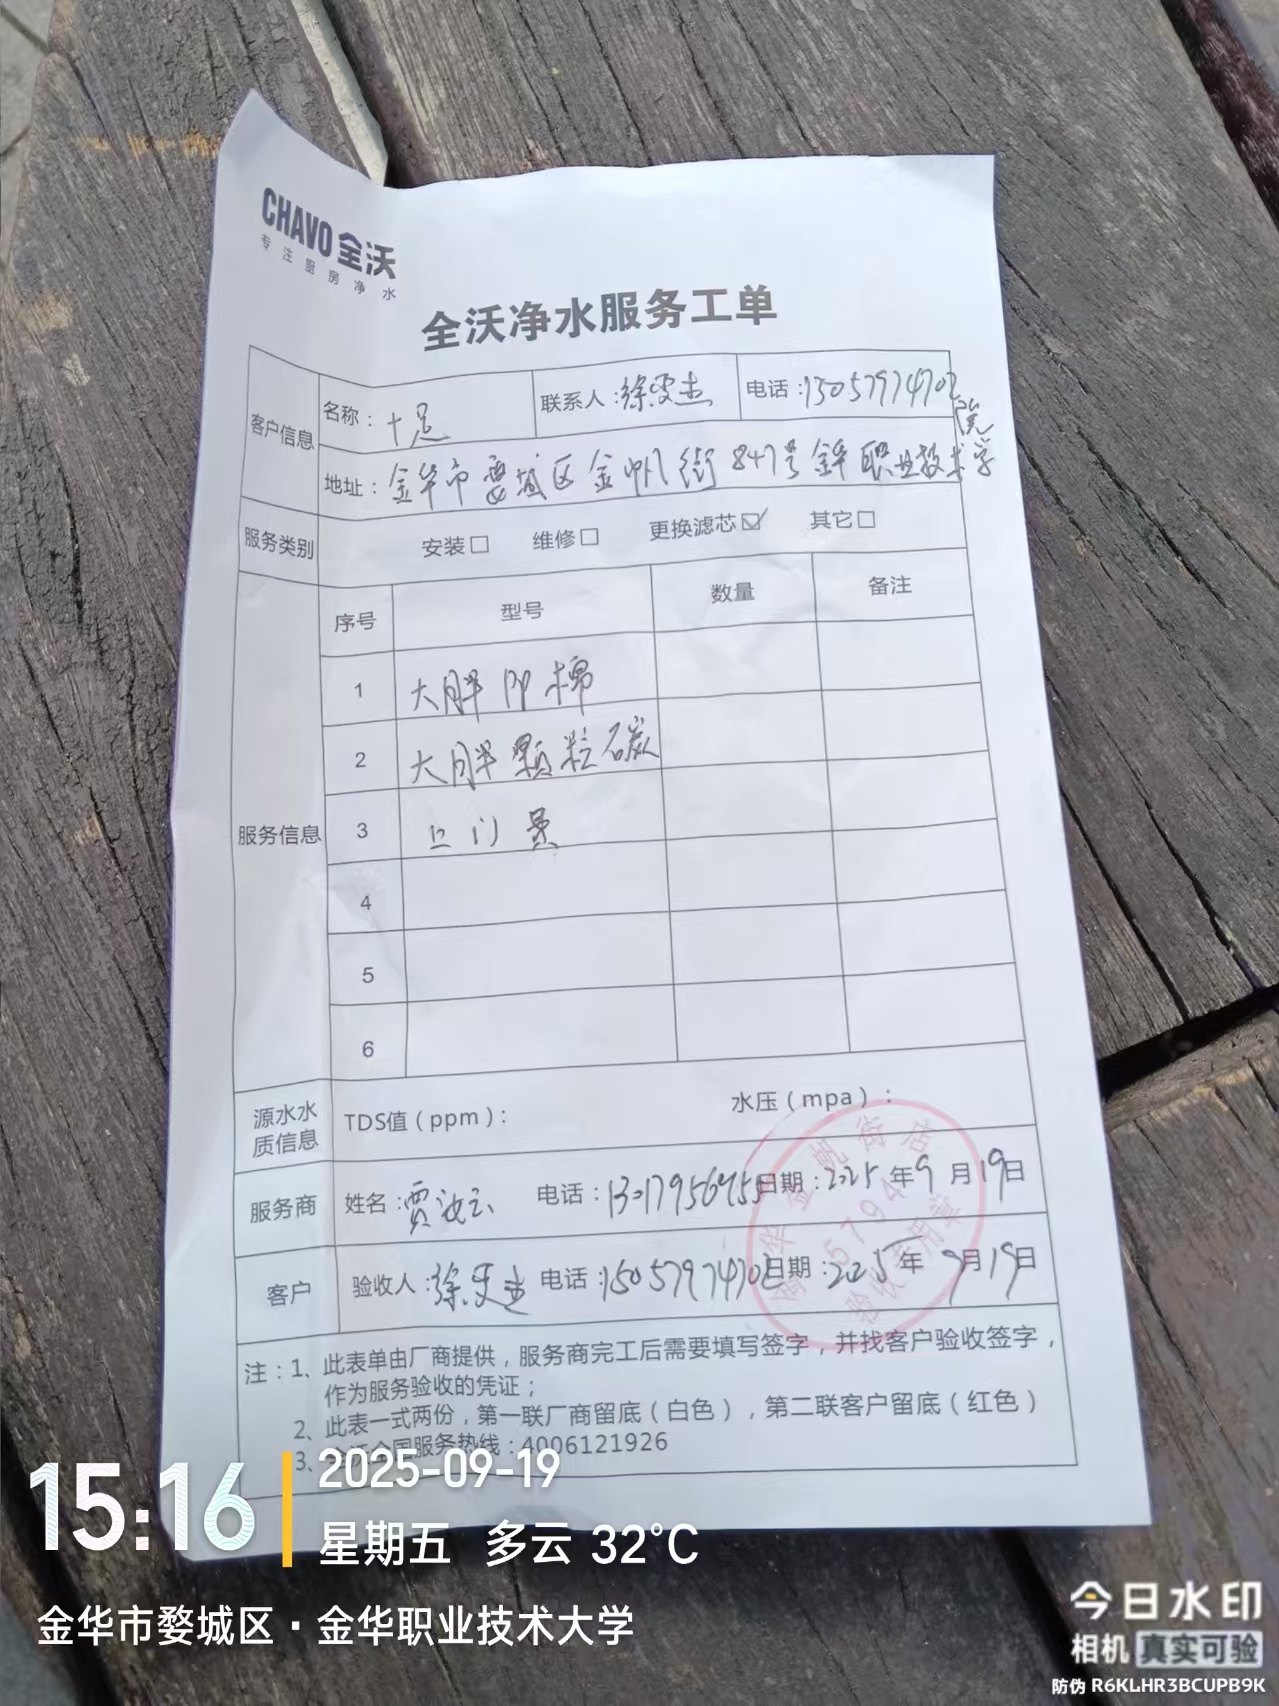 CHAVO 全沃
专注厨房净水
全沃净水服务工单
客户信息 名称：十足 联系人：徐更杰 电话：15057974702
地址：金华市婺城区金帆街847号金华职业技术学院
服务类别 安装□ 维修□ 更换滤芯☑ 其它□
服务信息 序号 型号 数量 备注
1 大胖PP棉
2 大胖颗粒碳
3 上门费
4
5
6
源水水质信息 TDS值（ppm）： 水压（mpa）：
服务商 姓名：贾 电话：13017956455 日期：2025年9月19日
客户 验收人：徐更杰 电话：15057974702 日期：2025年9月19日
金帆街店
5794
验收专用章
注：1、此表单由厂商提供，服务商完工后需要填写签字，并找客户验收签字，
作为服务验收的凭证；
2、此表一式两份，第一联厂商留底（白色），第二联客户留底（红色）
3、全沃全国服务热线：4006121926
15:16
2025-09-19
星期五 多云 32°C
金华市婺城区·金华职业技术大学
今日水印
相机 真实可验
防伪 R6KLHR3BCUPB9K